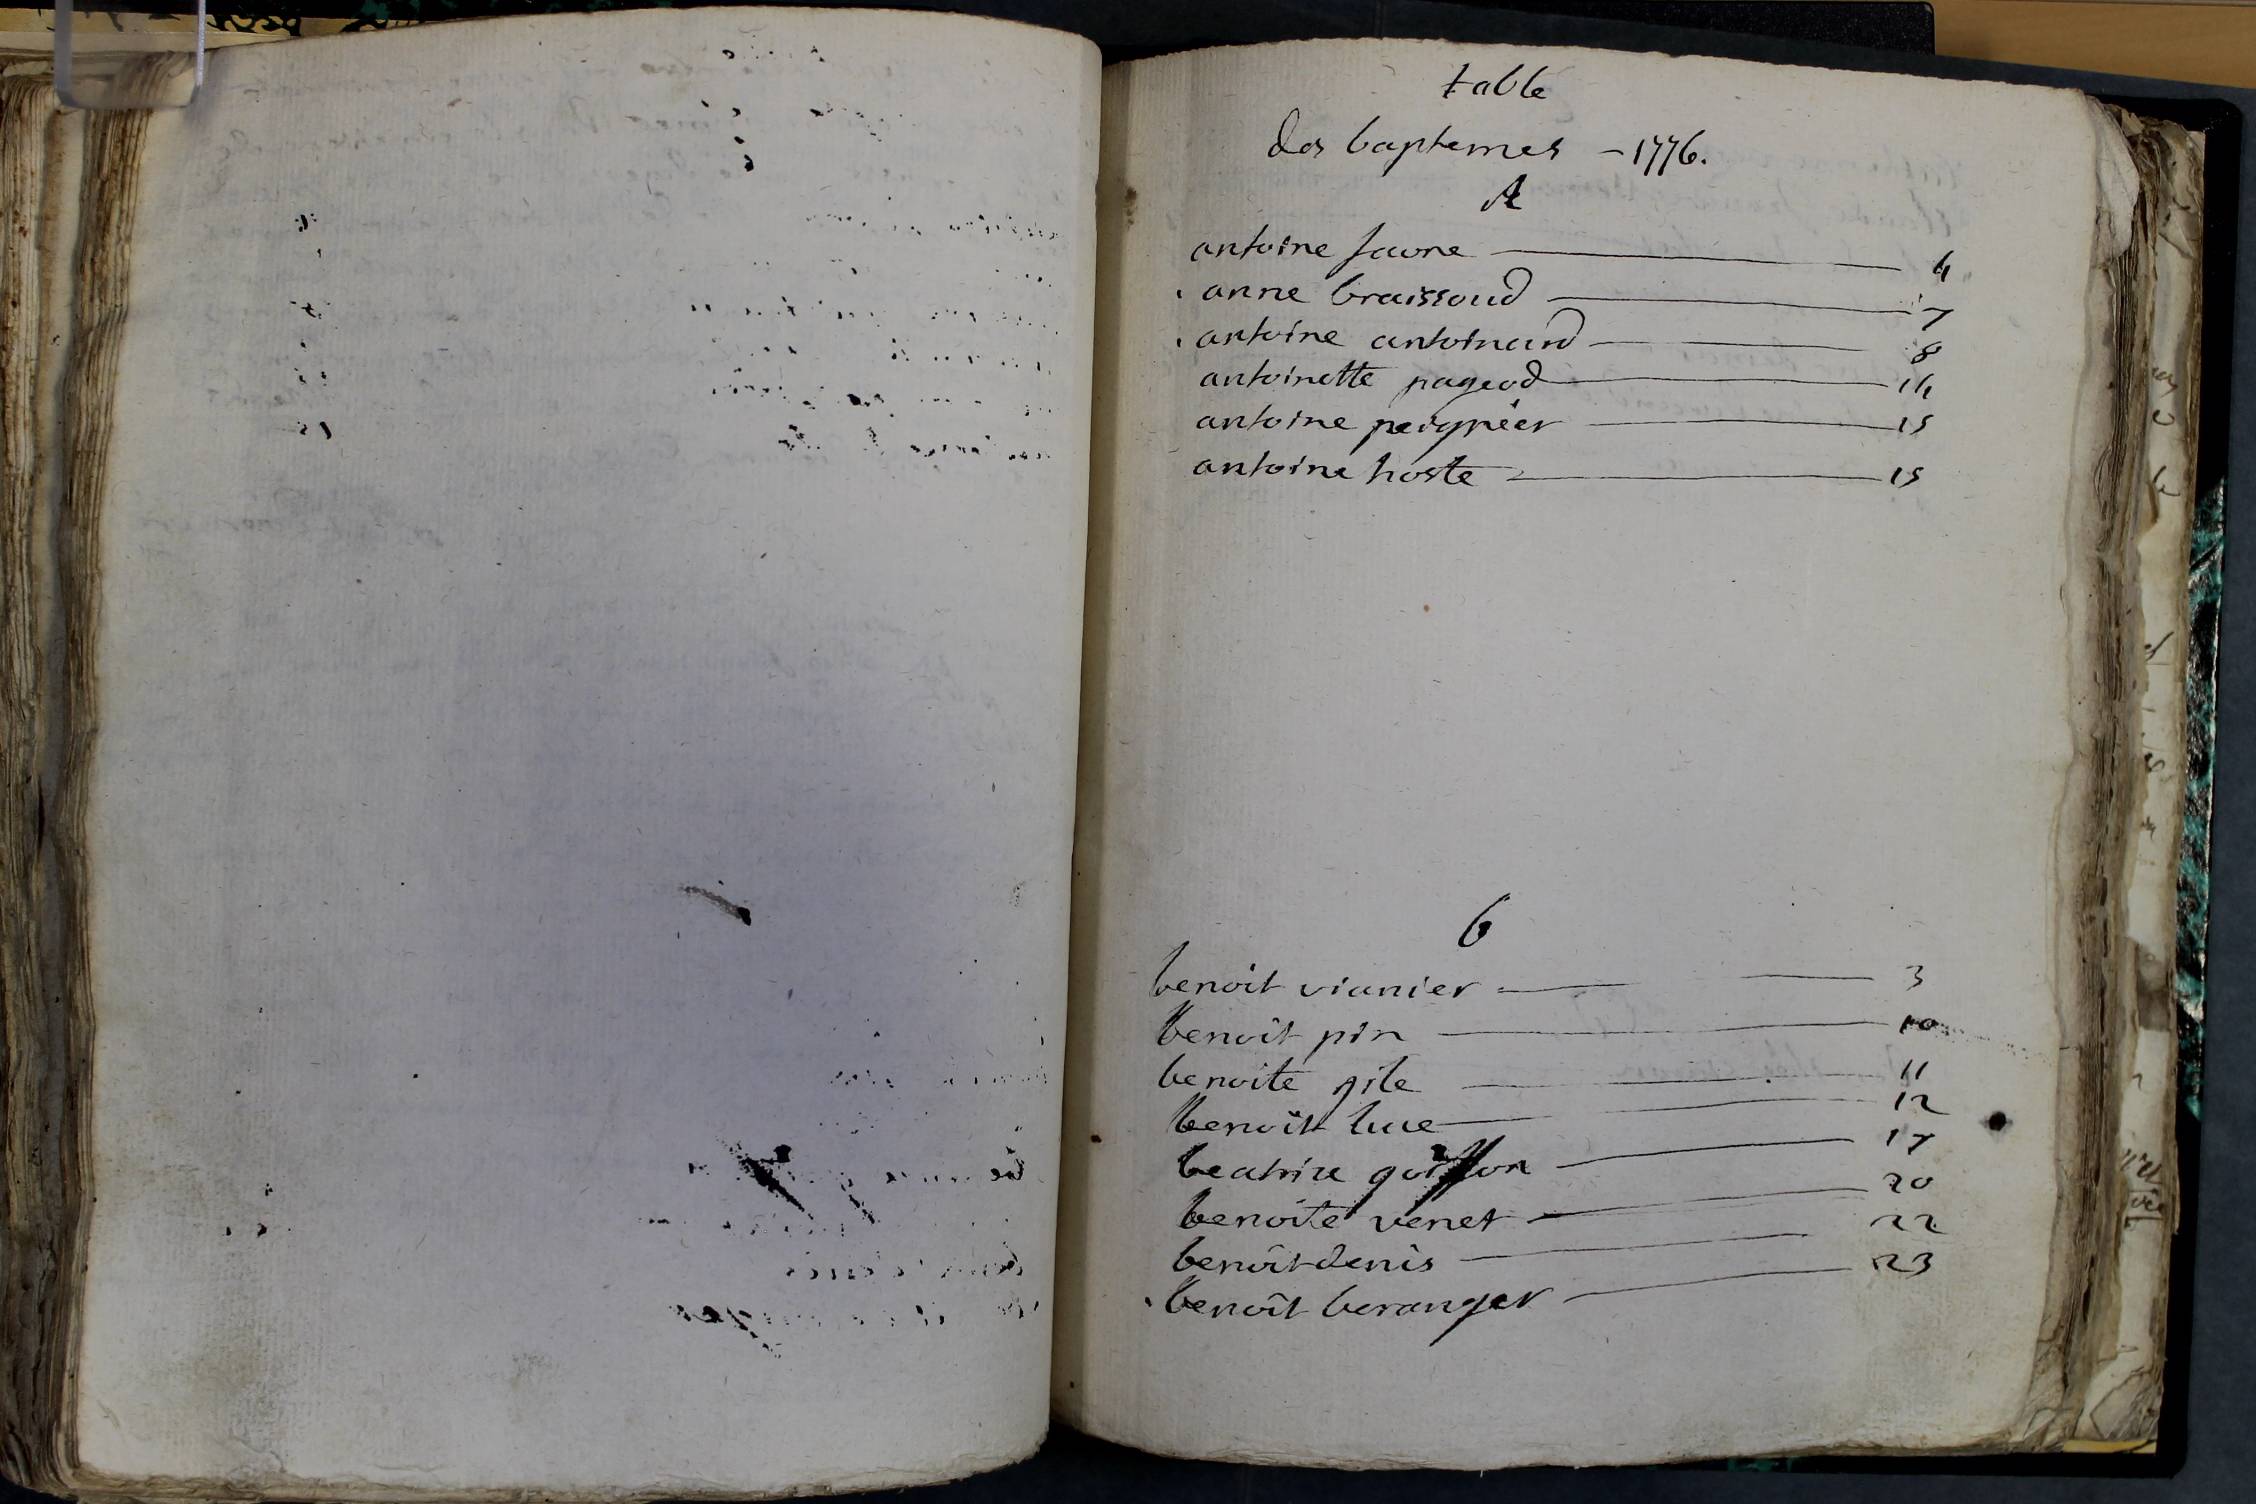 table
des baptemes - 1776.
A
antoine favre 4
anne braissoud 7
antoine antoinard 8
antoinette pageod 14
antoine peignéer 15
antoine hoste 15
b
benoit vianier 3
benoît pin 10
benoite gile 11
benoît luue 12
beatrice goiffon 17
benoite venet 20
benoît denis 22
benoît beranger 23